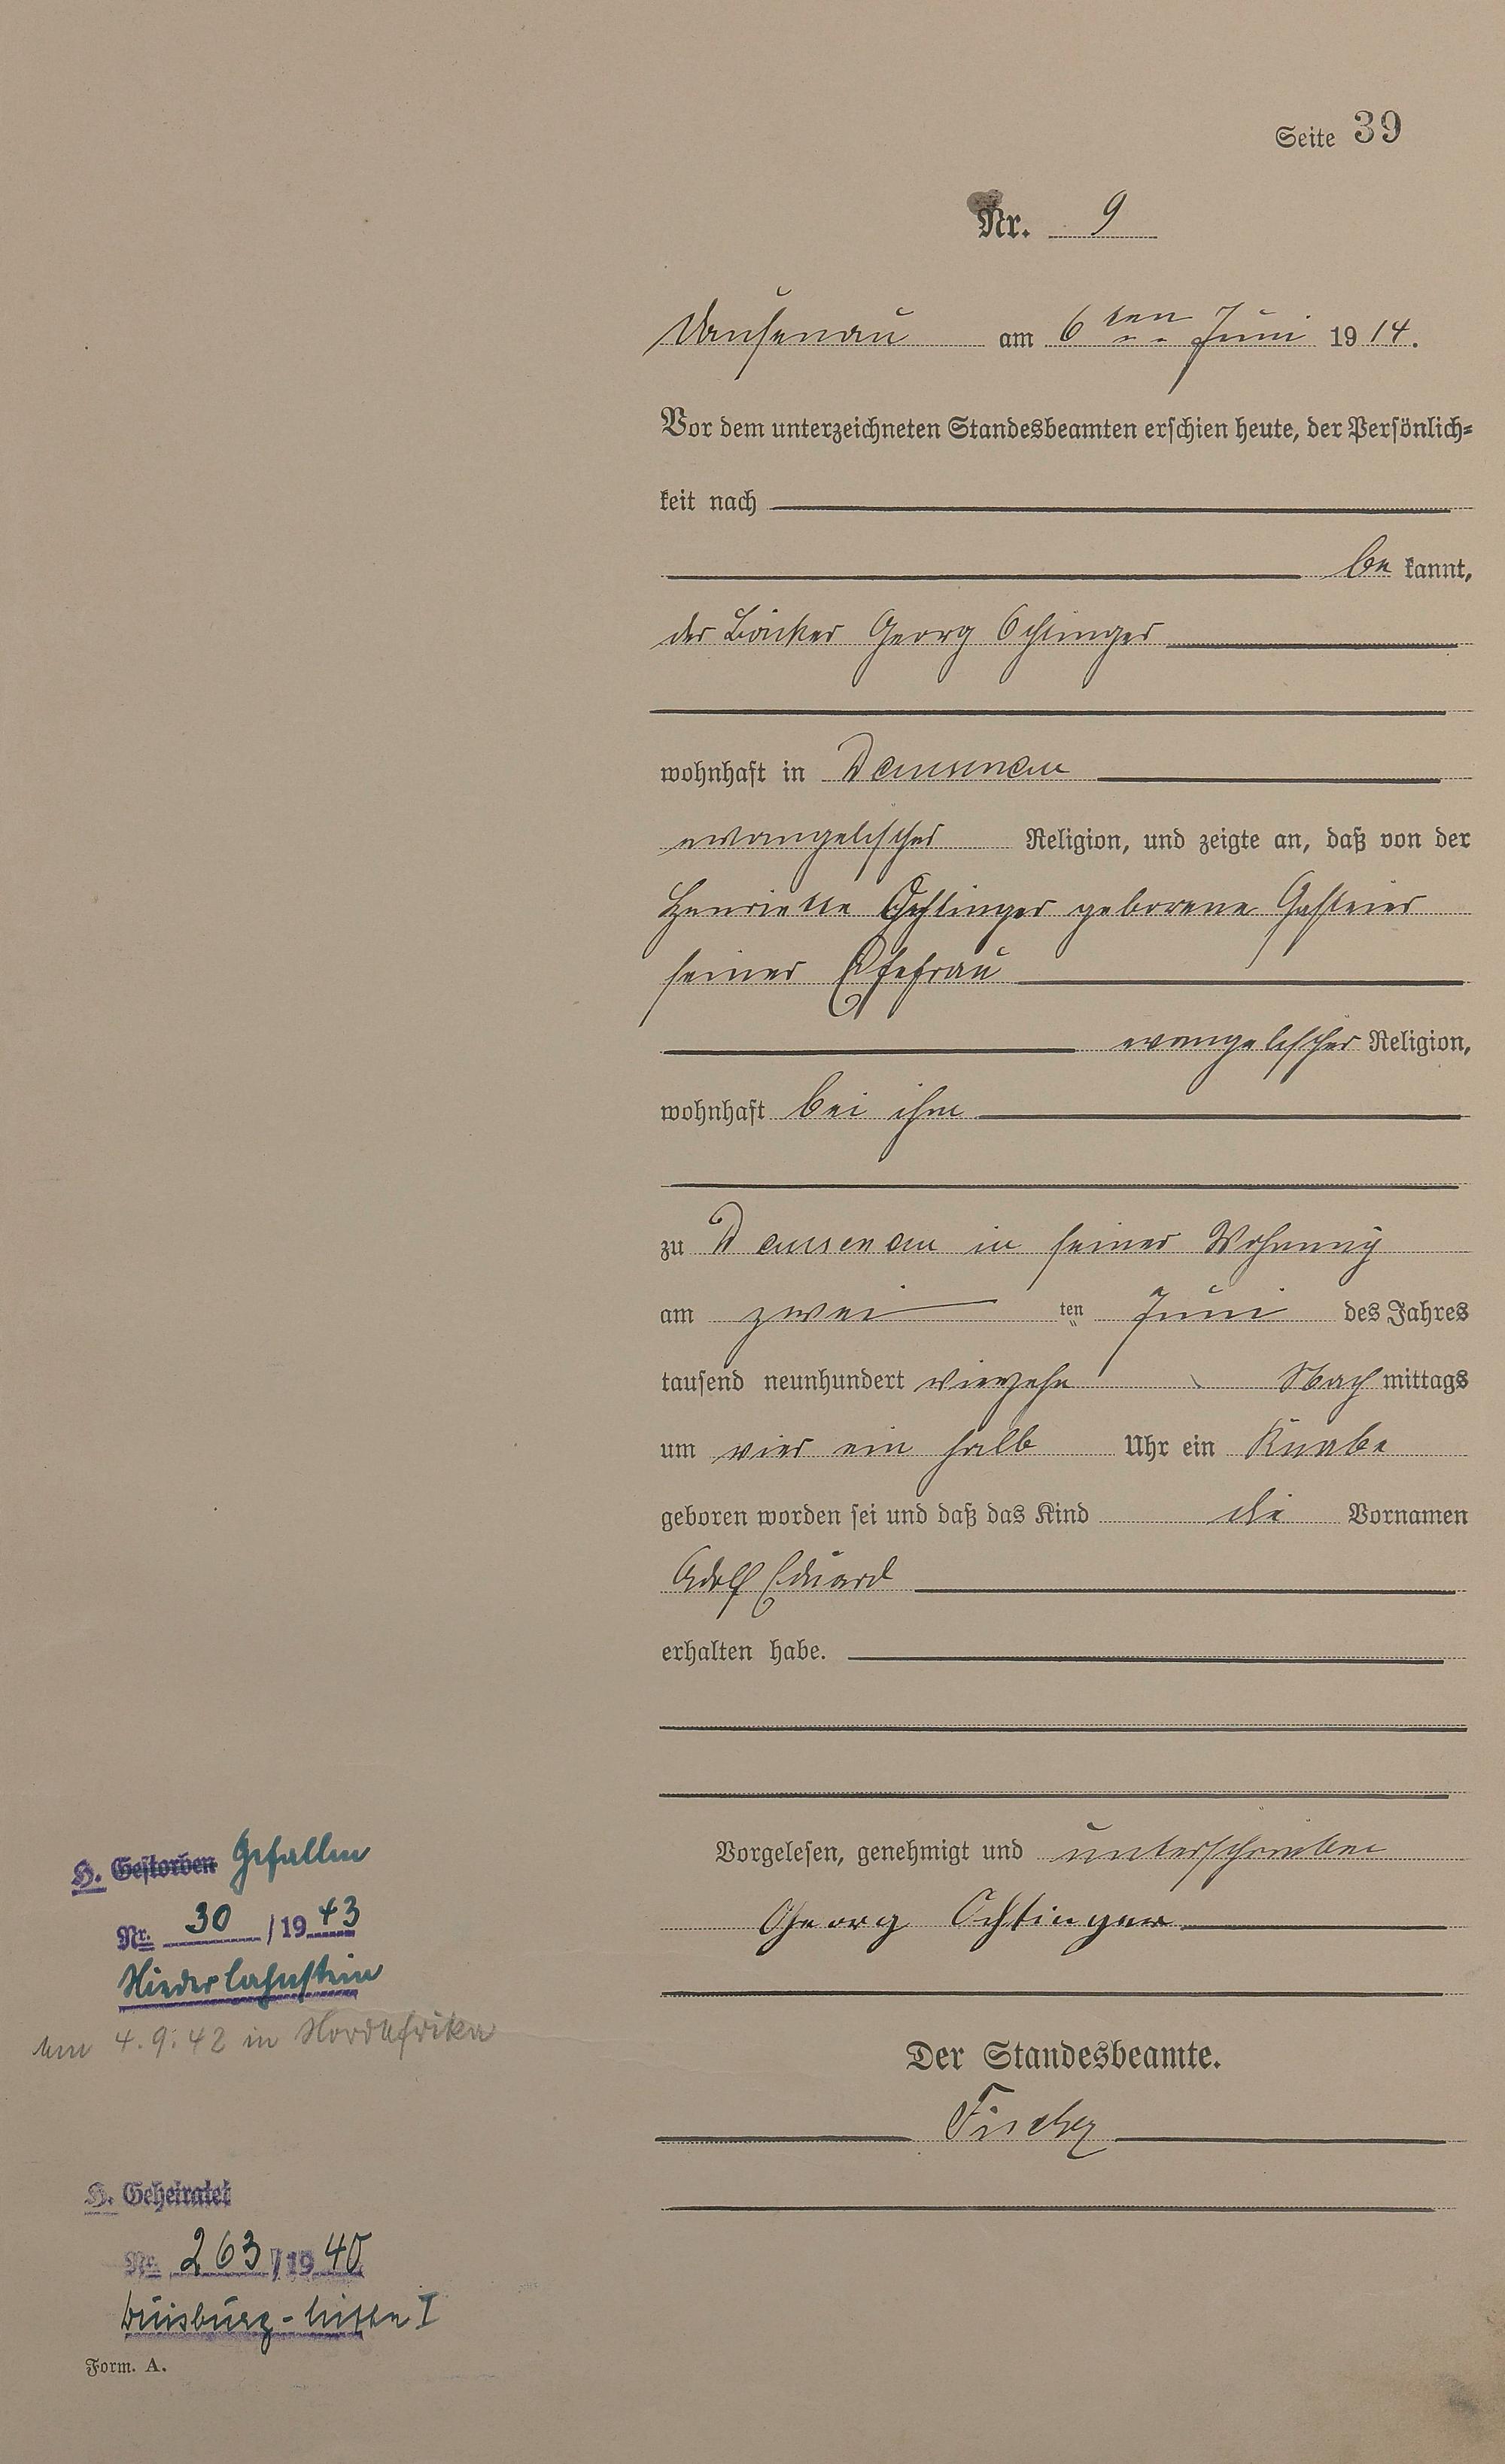 Seite 39
Nr. 9
Dausenau am 6ten Juni 1914.
Vor dem unterzeichneten Standesbeamten erschien heute, der Persönlich=
keit nach
be kannt,
der Bäcker Georg Ochtinger
wohnhaft in Dausenau
evangelischer Religion, und zeigte an, daß von der
Henriette Ochtinger geborene Gasteier
seiner Ehefrau
evangelischer Religion,
wohnhaft bei ihm
zu Dausenau in seiner Wohnung
am zwei ten Juni des Jahres
tausend neunhundert vierzehn Nach mittags
um vier ein halb Uhr ein Knabe
geboren worden sei und daß das Kind die Vornamen
Adolf Eduard
erhalten habe.
Vorgelesen, genehmigt und unterschrieben
Georg Ochtinger
Der Standesbeamte.
Fischer
H. Gestorben Gefallen
Nr. 30 /1943
Niederlahnstein
am 4.9.42 in Nordafrika
H. Geheiratet
Nr. 263/1940
Duisburg-Mitte I
Form. A.